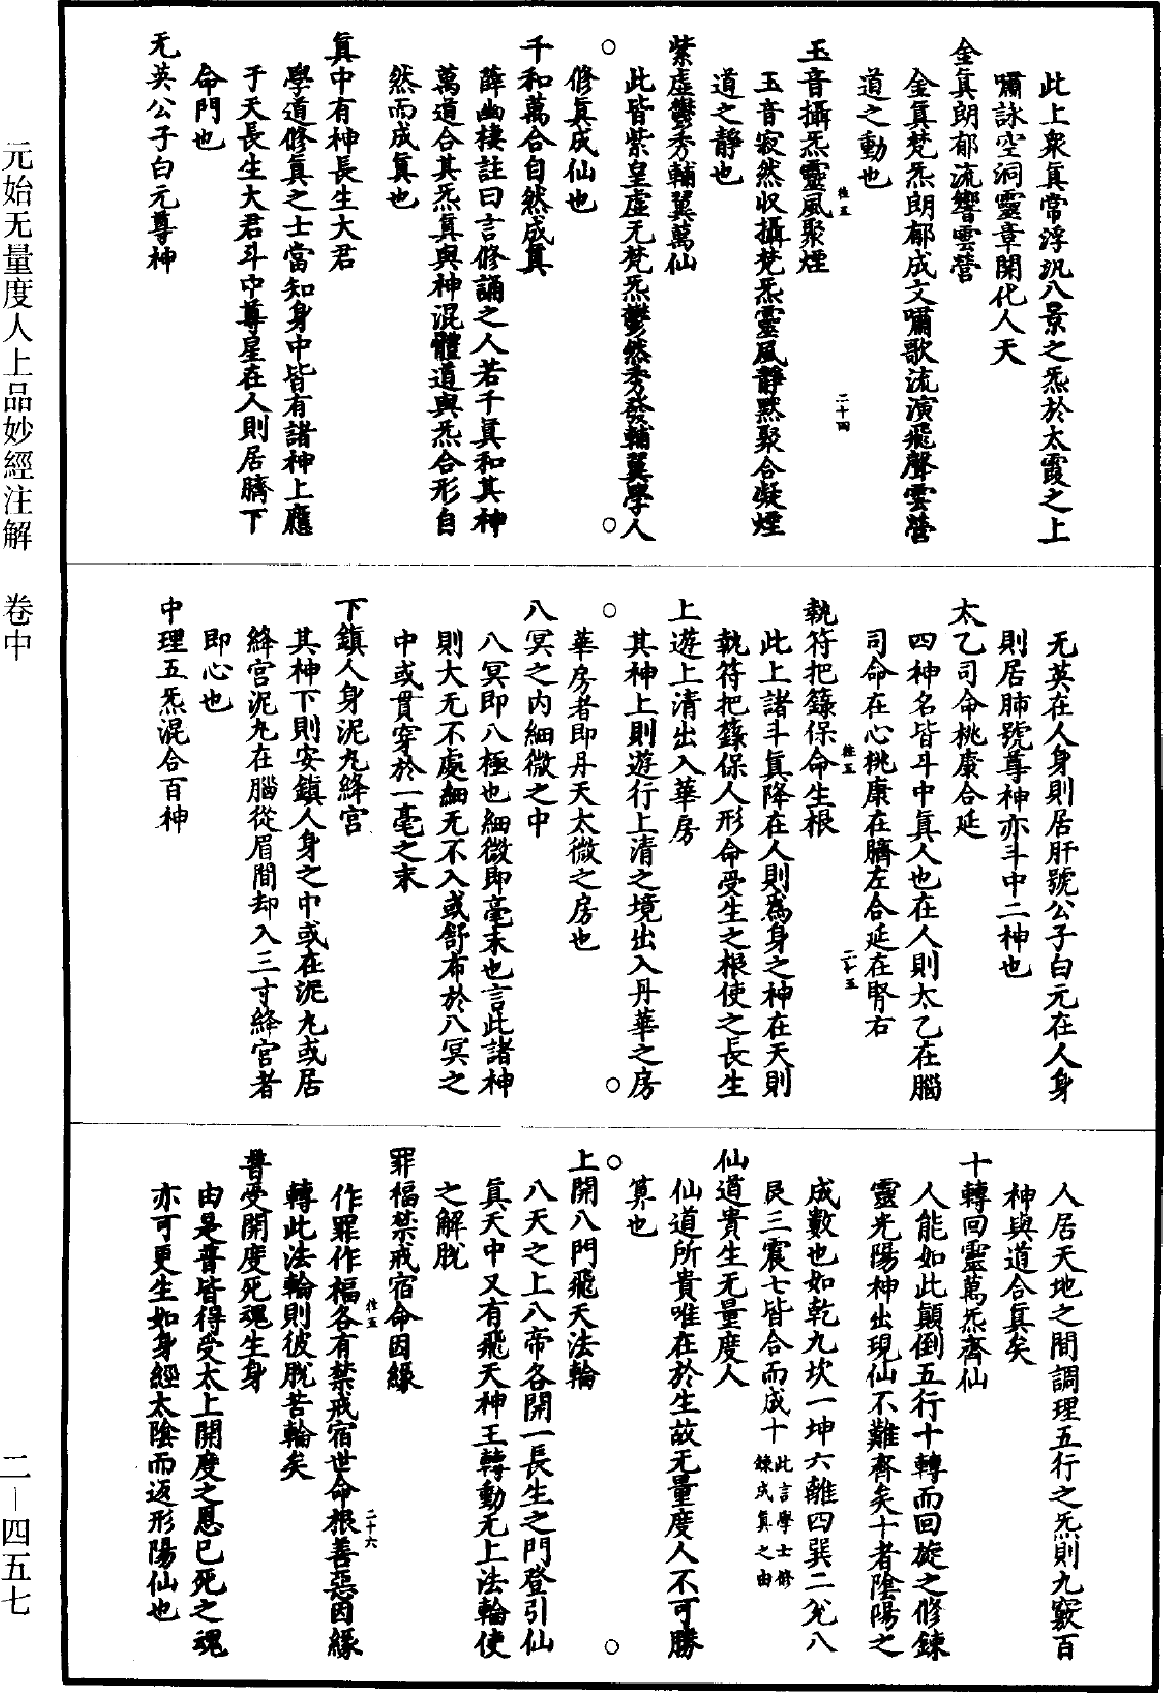 此上衆真常浮汎八景之炁於太霞之上
嘯詠空洞靈章開化人天
金真朗郁流響雲營
金真梵炁朗郁成文嘯歌流演飛聲雲營
道之動也
玉音攝炁靈風聚煙
玉音寂然収攝梵炁靈風靜默聚合凝煙
道之靜也
紫虛鬱秀輔翼萬仙
此皆紫皇虛无梵炁鬱然秀發輔翼學人
修真成仙也
千和萬合自然成真
薛幽棲註曰言修誦之人若千真和其神
萬道合其炁真與神混體道與炁合形自
然而成真也
真中有神長生大君
學道修真之士當知身中皆有諸神上應
于天長生大君斗中尊星在人則居臍下
命門也
无英公子白元尊神
二十四
无英在人身則居肝號公子白元在人身
則居肺號尊神亦斗中二神也
太乙司命桃康合延
四神名皆斗中真人也在人則太乙在腦
司命在心桃康在臍左合延在腎右
執符把籙保命生根
此上諸斗真降在人則為身之神在天則
執符把籙保人形命受生之根使之長生
上遊上清出入華房
其神上則遊行上清之境出入丹華之房
華房者即丹天太微之房也
八冥之内細微之中
八冥即八極也細微即毫末也言此諸神
則大无不處細无不入或舒布於八冥之
中或貫穿於一毫之末
下鎮人身泥丸絳宮
其神下則安鎮人身之中或在泥丸或居
絳宮泥丸在腦從眉間却入三寸絳宮者
即心也
中理五炁混合百神
二十五
人居天地之間調理五行之炁則九竅百
神與道合真矣
十轉回靈萬炁齊仙
人能如此顛倒五行十轉而回旋之修鍊
靈光陽神出現仙不難齊矣十者陰陽之
成數也如乾九坎一坤六離四巽二兌八
艮三震七皆合而成十此言學士修
鍊成真之由
仙道貴生无量度人
仙道所貴唯在於生故无量度人不可勝
算也
上開八門飛天法輪
八天之上八帝各開一長生之門登引仙
真天中又有飛天神王轉動无上法輪使
之解脫
罪福禁戒宿命因緣
作罪作福各有禁戒宿世命根善惡因緣
轉此法輪則彼脫苦輪矣
普受開度死魂生身
由是普皆得受太上開度之恩已死之魂
亦可更生如身經太陰而返形陽仙也
二十六
元始无量度人上品妙經注解 卷中
二—四五七